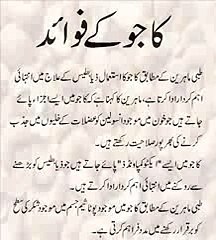 کاجو کے فوائد
طبی ماہرین کے مطابق کاجو کا استعمال ذیابطیس کے علاج میں انتہائی
اہم کردار ادا کرتا ہے، ماہرین کا کہنا ہے کہ کاجو میں ایسے اجزاء پائے
جاتے ہیں جو خون میں موجود انسولین کو عضلات کے خلیوں میں جذب
کرنے کی بھرپور صلاحیت رکھتے ہیں۔
کاجو میں ایسے "ایکٹو کمپاؤنڈز" پائے جاتے ہیں جو ذیابطیس کو بڑھنے
سے روکنے میں انتہائی اہم کردار ادا کرتے ہیں۔
طبی ماہرین کے مطابق کاجو میں موجود پوٹاشیم جسم میں موجود شکر کی سطح
کو برقرار رکھنے میں مدد فراہم کرتی ہے۔